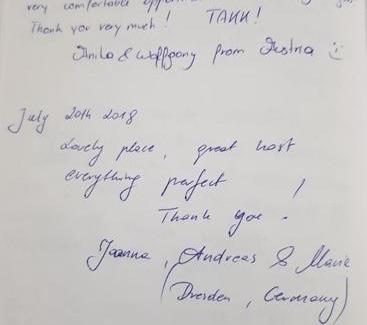 very comfortable
Thank you very much! TAKK!
Anita & Wolfgang from Austria
July 20th 2018
Lovely place, great host
everything perfect !
Thank you.
Joanna, Andreas & Marie
(Dresden, Germany)